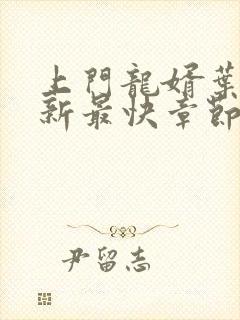 上門龍婿葉
新最快章節
尹留志